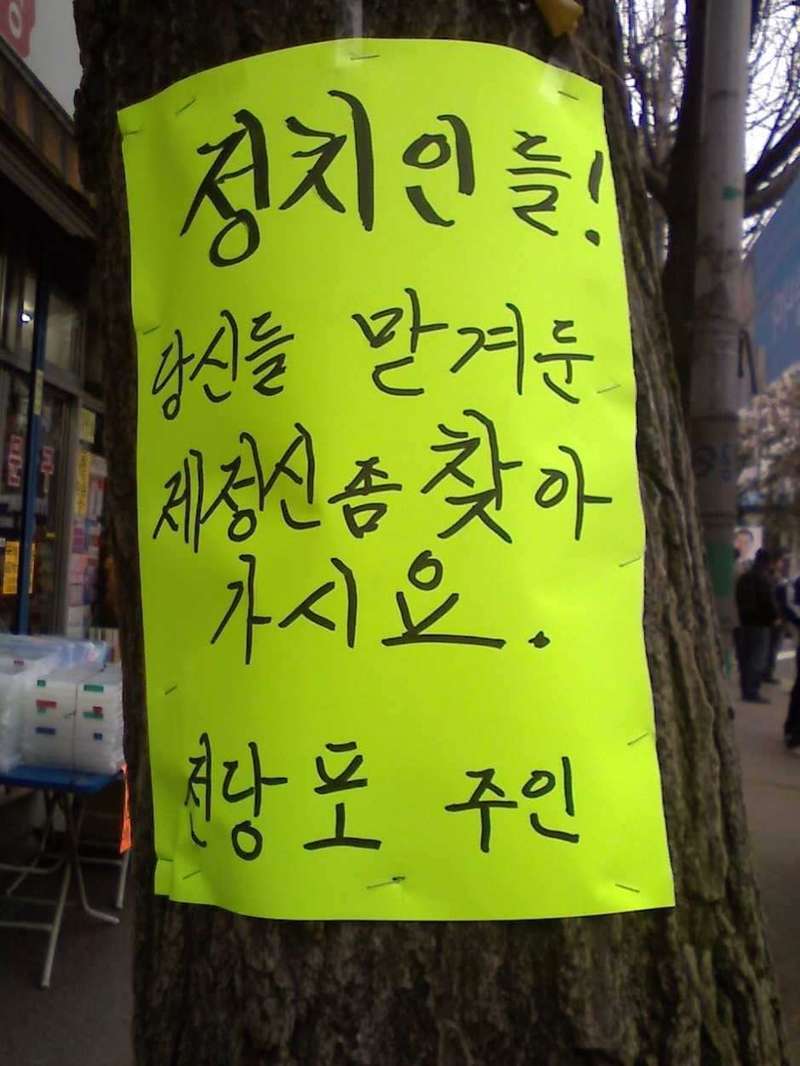 정치인들!
당신들 맏겨둔
제정신 좀 찾아
가시요.
전당포 주인